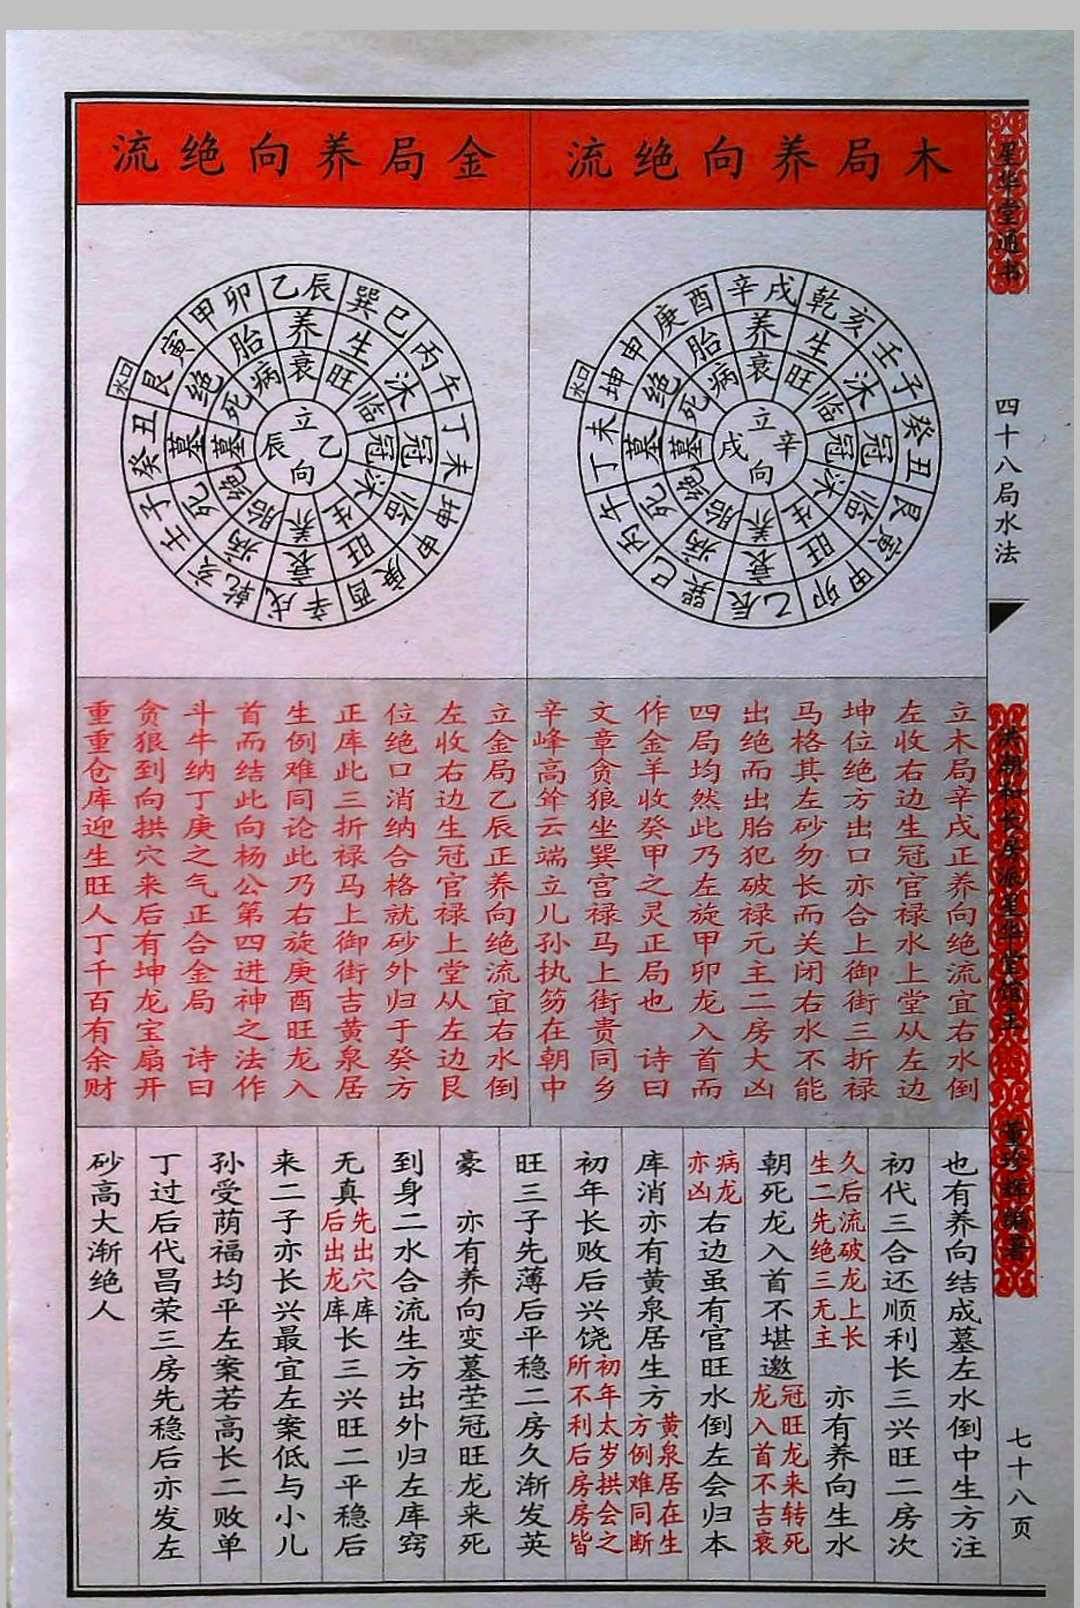 星华堂通书
四十八局水法
洪潮和长房派星华堂馆主
董珍辉编著
七十八页
木局养向绝流
辛戌 乾亥 壬子 癸丑 艮寅 甲卯 乙辰 巽巳 丙午 丁未 坤申 庚酉
养 生 沐 冠 临 旺 衰 病 死 墓 绝 胎
衰 旺 临 冠 沐 生 养 胎 绝 墓 死 病
立辛向戌
水口
立木局辛戌正养向绝流宜右水倒
左收右边生冠官禄水上堂从左边
坤位绝方出口亦合上御街三折禄
马格其左砂勿长而关闭右水不能
出绝而出胎犯破禄元主二房大凶
四局均然此乃左旋甲卯龙入首而
作金羊收癸甲之灵正局也 诗曰
文章贪狼坐巽宫禄马上街贵同乡
辛峰高耸云端立儿孙执笏在朝中
金局养向绝流
乙辰 巽巳 丙午 丁未 坤申 庚酉 辛戌 乾亥 壬子 癸丑 艮寅 甲卯
养 生 沐 冠 临 旺 衰 病 死 墓 绝 胎
衰 旺 临 冠 沐 生 养 胎 绝 墓 死 病
立乙向辰
水口
立金局乙辰正养向绝流宜右水倒
左收右边生冠官禄上堂从左边艮
位绝口消纳合格就砂外归于癸方
正库此三折禄马上御街吉黄泉居
生例难同论此乃右旋庚酉旺龙入
首而结此向杨公第四进神之法作
斗牛纳丁庚之气正合金局 诗曰
贪狼到向拱穴来后有坤龙宝扇开
重重仓库迎生旺人丁千百有余财
也有养向结成墓左水倒中生方注
初代三合还顺利长三兴旺二房次
久后流破龙上长生二先绝三无主 亦有养向生水
朝死龙入首不堪邀冠旺龙来转死龙入首不吉衰
病龙亦凶右边虽有官旺水倒左会归本
库消亦有黄泉居生方黄泉居在生方例难同断
初年长败后兴饶初年太岁拱会之所不利后房房皆
旺三子先薄后平稳二房久渐发英
豪 亦有养向变墓茔冠旺龙来死
到身二水合流生方出外归左库窍
无真先出穴库后出龙库长三兴旺二平稳后
来二子亦长兴最宜左案低与小儿
孙受荫福均平左案若高长二败单
丁过后代昌荣三房先稳后亦发左
砂高大渐绝人